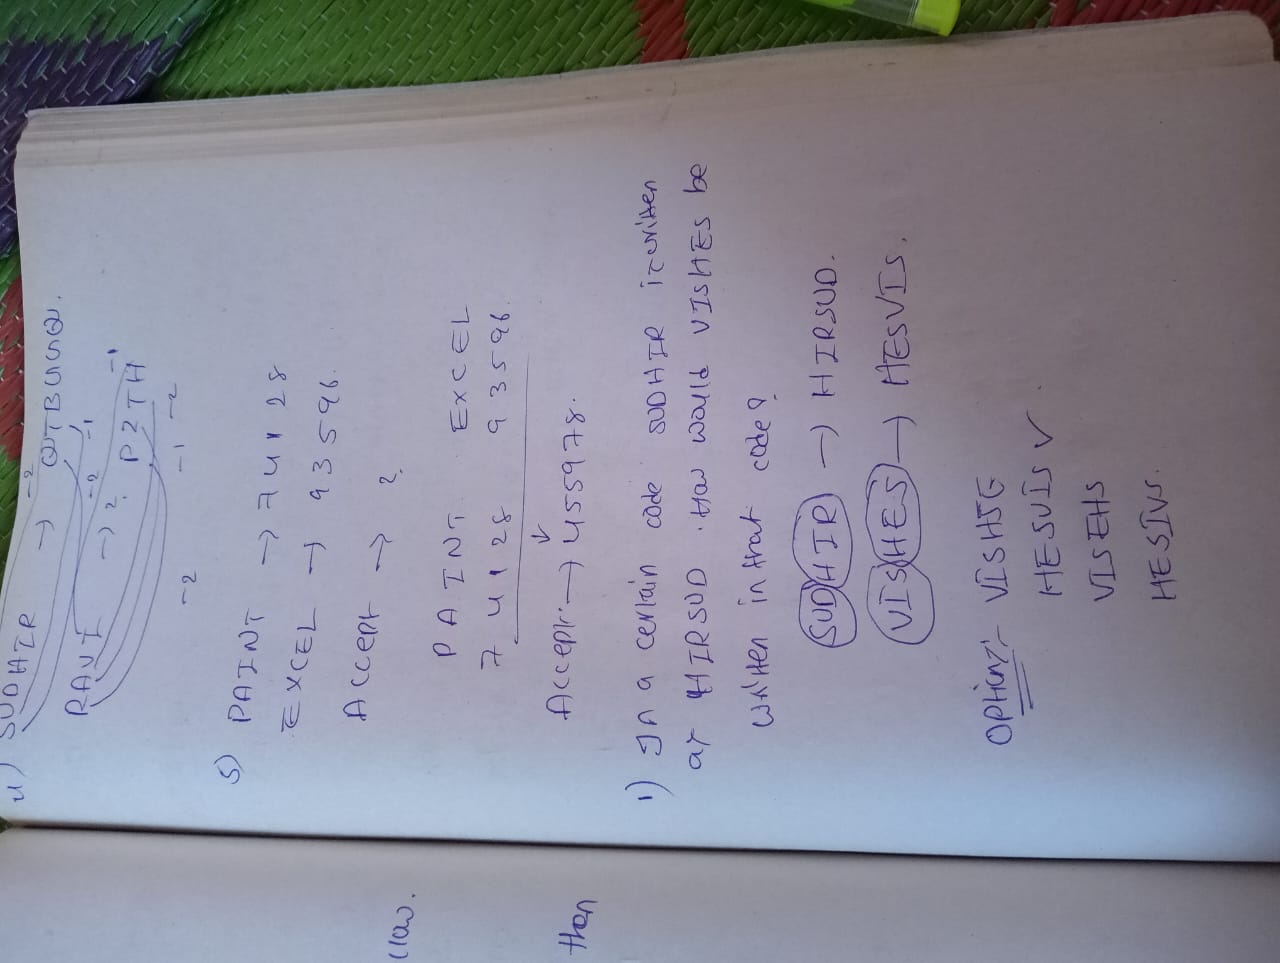 4) SUDHIR → QTBUSQ.
RAVI → ? PZTH
-2 -1 -2 -1
-2 -1 -2
5) PAINT → 74128
EXCEL → 93596.
Accept → ?
PAINT EXCEL
74128 93596.
Accept → 455978.
1) In a certain code SUDHIR is written
as HIRSUD. How would VISHES be
written in that code?
SUDHIR → HIRSUD.
VISHES → HESVIS.
Option:-
HESVIS ✓
VISEHS
HESIVS.
llow.
then